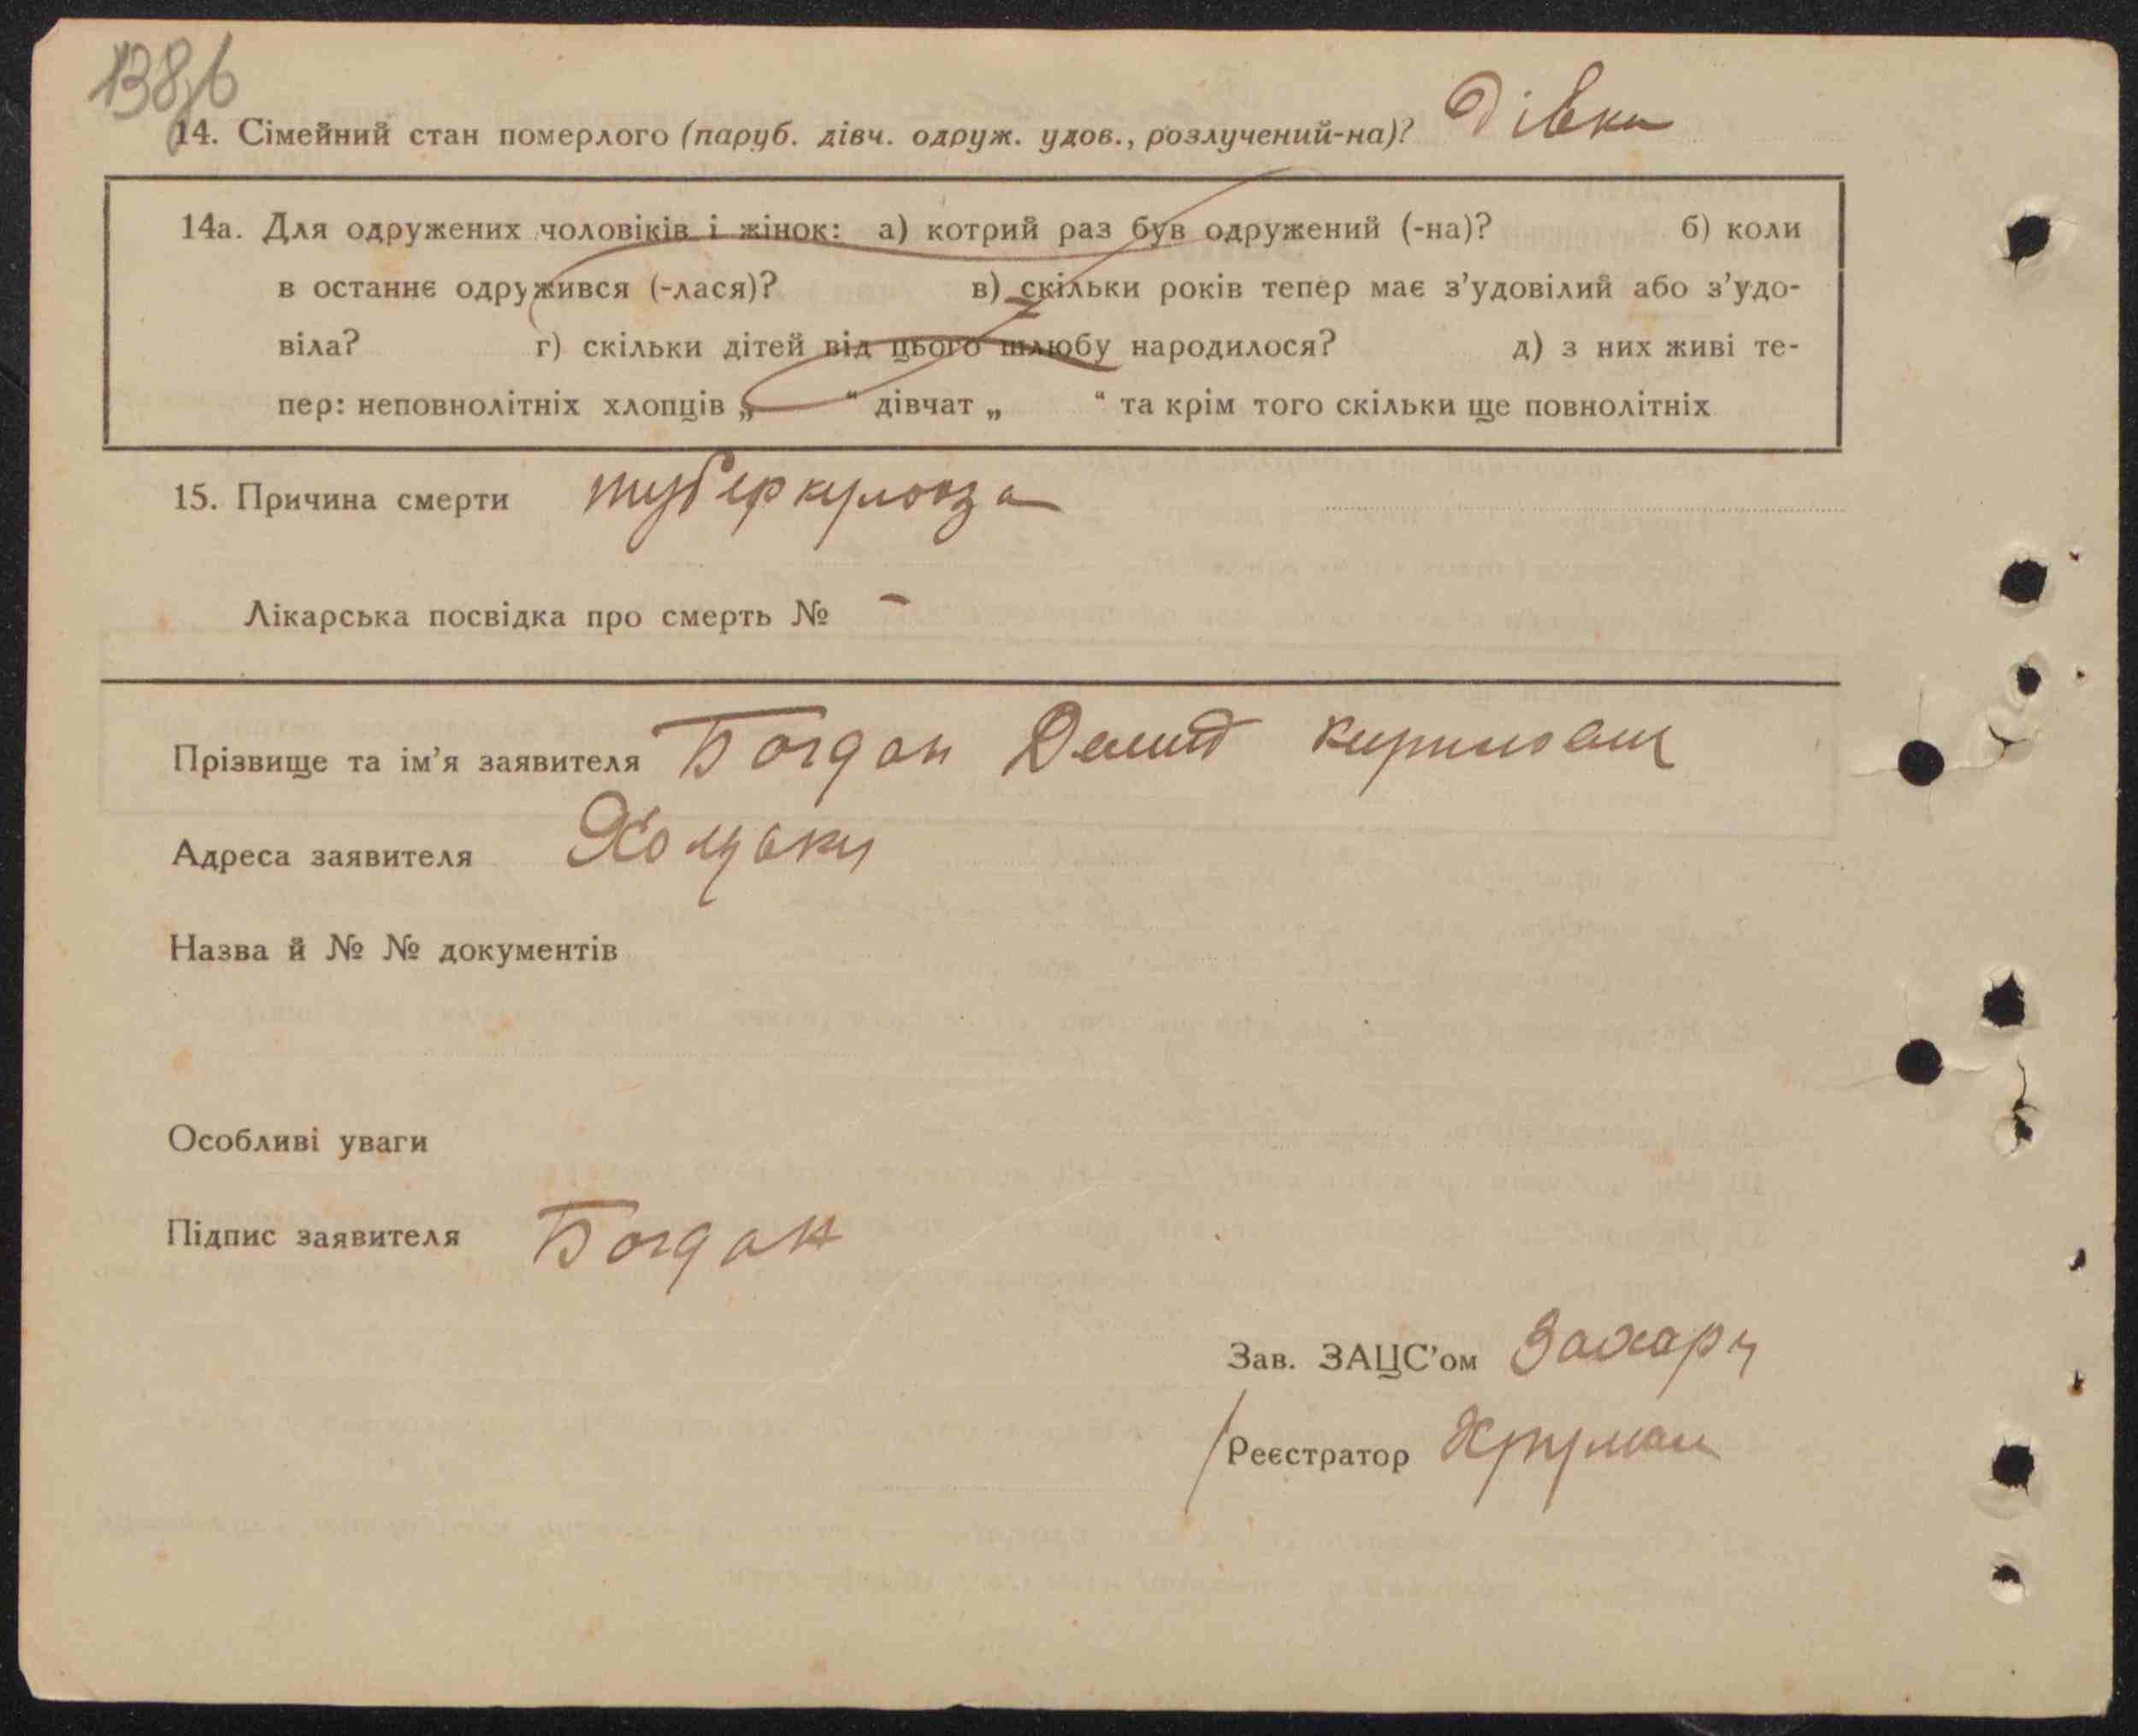 14. Сімейний стан померлого (паруб. дівч. одруж. удов., розлучений-на)? Дівка
14а. Для одружених чоловіків і жінок: а) котрий раз був одружений (-на)? б) коли
в останнє одружився (-лася)? в) скільки років тепер має з’удовілий або з’удо-
віла? г) скільки дітей від цього шлюбу народилося? д) з них живі те-
пер: неповнолітніх хлопців „ “ дівчат „ “ та крім того скільки ще повнолітніх
15. Причина смерти туберкульоза
Лікарська посвідка про смерть № –
Прізвище та ім’я заявителя Богдан Демид
Адреса заявителя
Назва й № № документів
Особливі уваги
Підпис заявителя Богдан
Зав. ЗАЦС’ом
Реєстратор